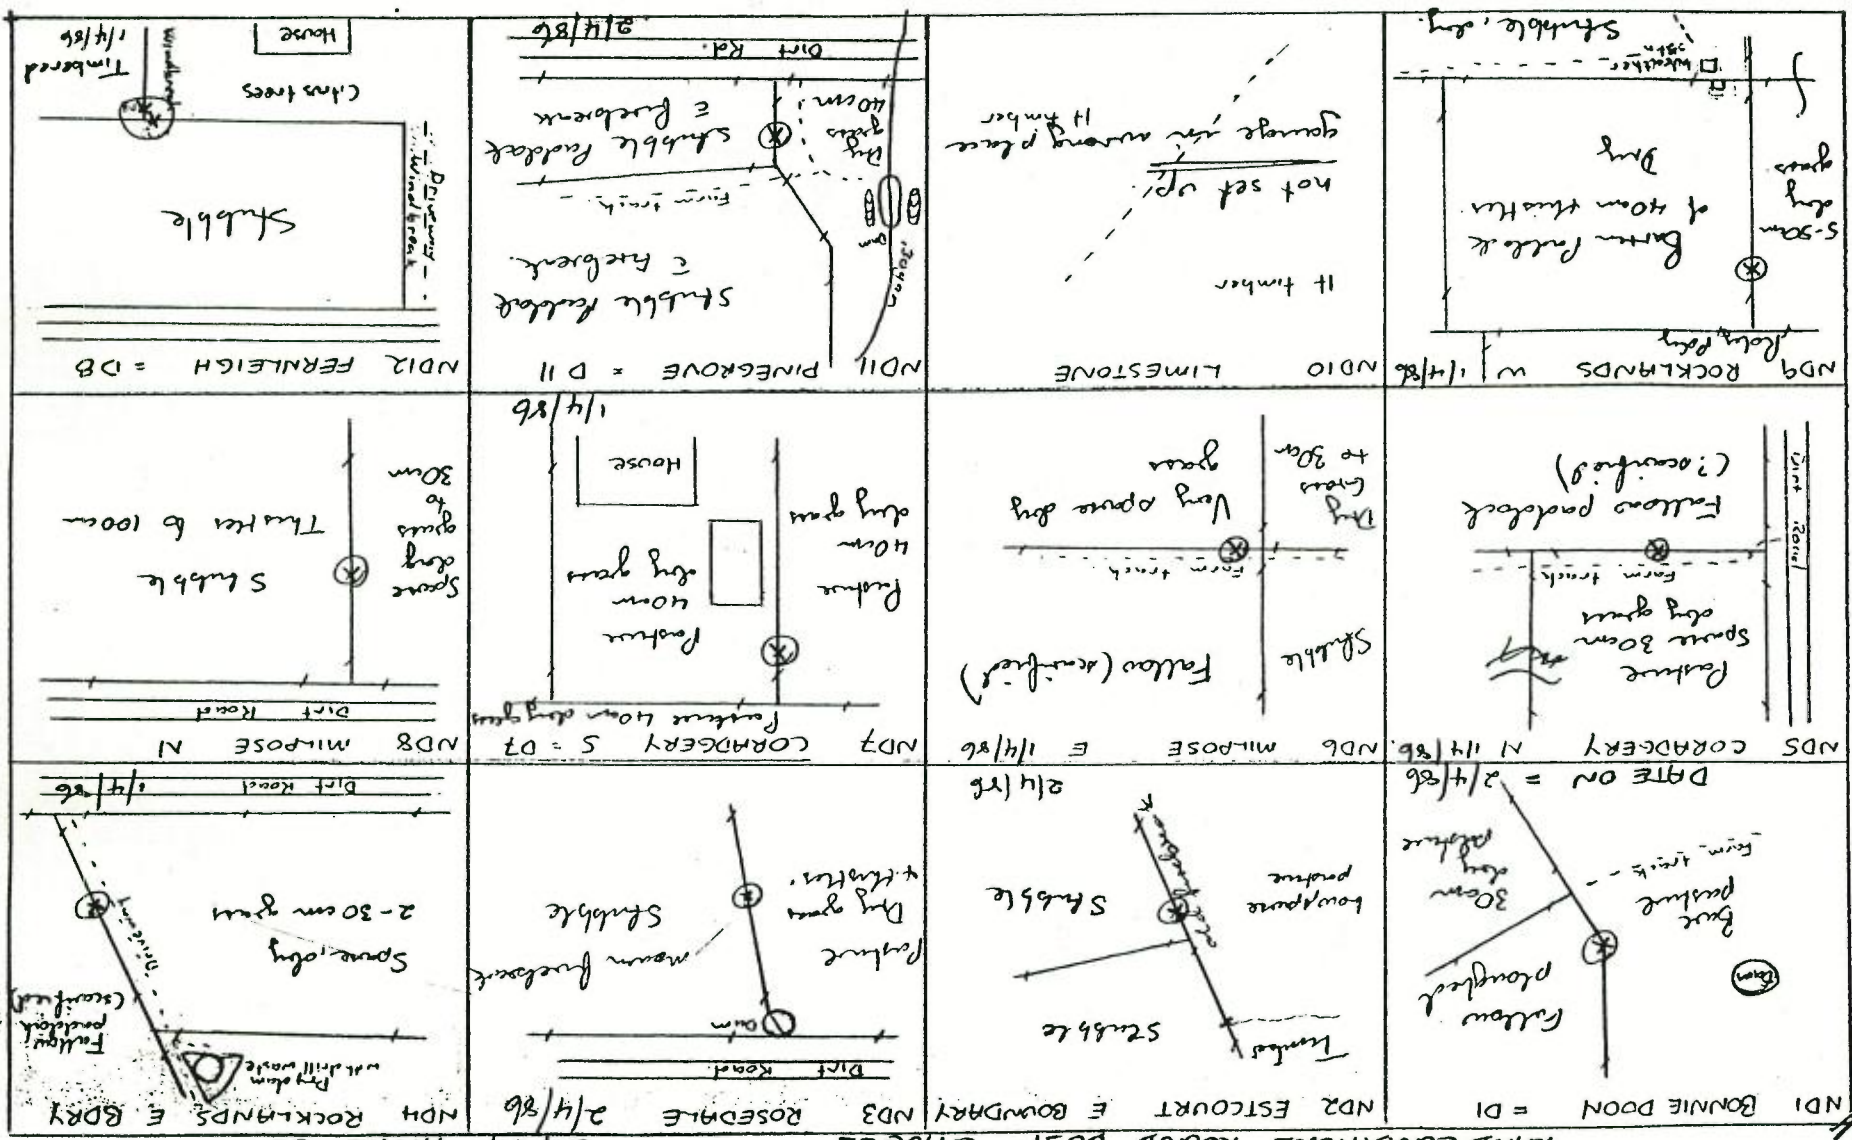 ND1 BONNIE DOON = D1
Fallow
ploughed
Dam
Bare
pasture
Farm track
30cm
dry
pasture
DATE ON = 2/4/86
ND2 ESTCOURT E BOUNDARY
Timber
Stubble
Low sparse
pasture
old firebreak
Stubble
2/4/86
ND3 ROSEDALE 2/4/86
Dirt Road
Dam
Pasture
Dry grass
& thistles.
mown firebreak
Stubble
ND4 ROCKLANDS E BDRY
Dry dam
with drill waste
Fallow
paddock
(scarified)
Sparse, dry
2-30cm grass
Driveway
Dirt Road 1/4/86
ND5 CORADGERY N 1/4/86.
Dirt Road
Pasture
Sparse 30cm
dry grass
Farm track
Fallow paddock
(? scarified)
ND6 MILPOSE E 1/4/86
Stubble
Fallow (scarified)
Farm track
Dry
Grass
to 30cm
Very sparse dry
grass
ND7 CORADGERY S = D7
Pasture 40cm dry grass
Pasture
40cm
dry grass
Pasture
40cm
dry grass
House
1/4/86
ND8 MILPOSE N
Dirt Road
Sparse
dry
grass
to
30cm
Stubble
Thistles to 100cm
ND9 ROCKLANDS W 1/4/86
Roley Poley
5-50cm
dry
grass
Barren Paddock
of 40cm thistles.
Dry
Weather
Stn
Stubble, dry.
ND10 LIMESTONE
lt timber
not set up.
gauge in wrong place
lt timber
ND11 PINEGROVE = D11
Bogan
Dam
Stubble Paddock
c̄ firebreak.
Farm track
Dry
grass
40cm
Stubble Paddock
c̄ firebreak
Dirt Rd.
2/4/86
ND12 FERNLEIGH = D8
Driveway
Windbreak
Stubble
Citrus trees
House
Windbreak
Timbered
1/4/86